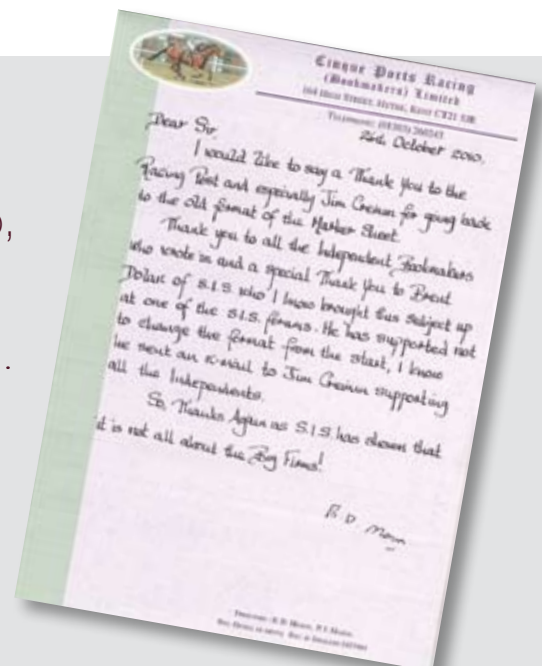 Cinque Ports Racing
(Bookmakers) Limited
164 High Street, Hythe, Kent CT21 5JR
Telephone: (01303) 260243
October 2010.
Dear Sir,
I would like to say a Thank you to the
Racing Post and especially Jim Cremin for going back
to the old format of the Marker Sheet.
Thank you to all the Independent Bookmakers
who wrote in and a special Thank you to Brent
Dolan of S.I.S. who I know brought this subject up
at one of the S.I.S. forums. He has supported not
to change the format from the start, I know
he sent an E-mail to Jim Cremin supporting
all the Independents.
So, Thanks Again as S.I.S. has shown that
it is not all about the Big Firms!
R. D.